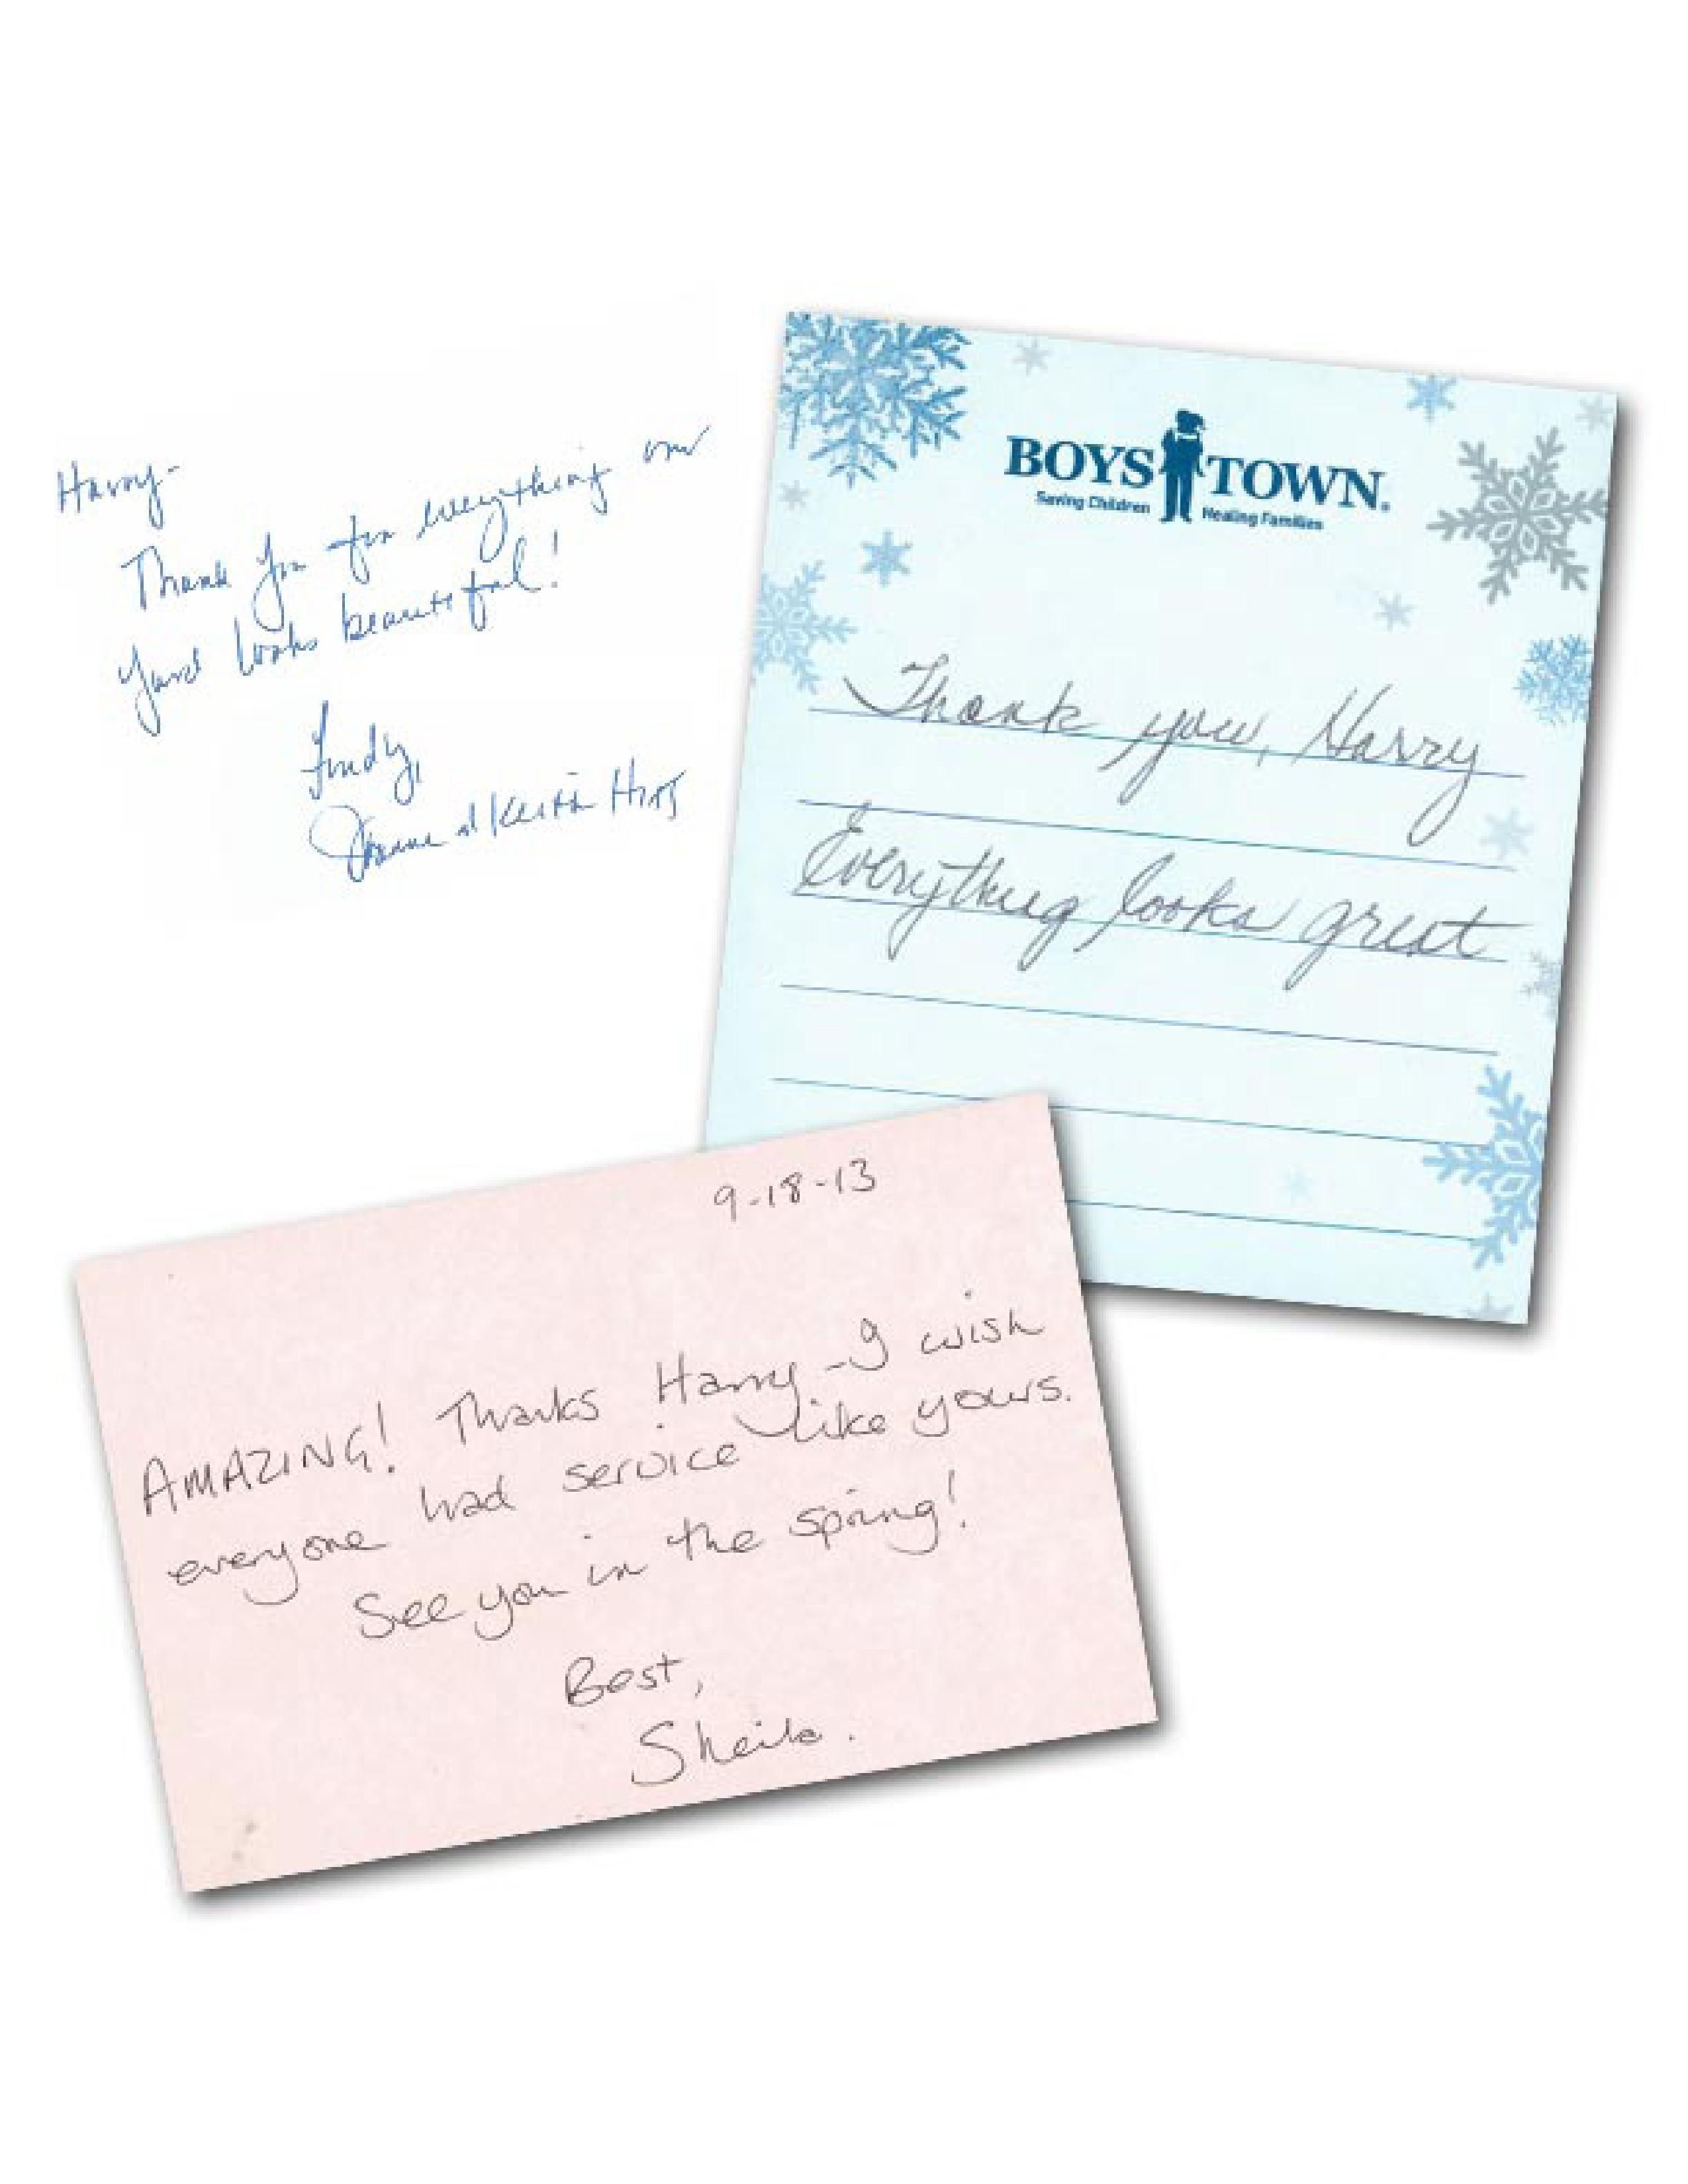 Harry-
Thank you for everything our
yard looks beautiful!
Fondly,
Joanne & Keith
BOYS TOWN®
Saving Children Healing Families
Thank you, Harry
Everything looks great
9-18-13
AMAZING! Thanks Harry - I wish
everyone had service like yours.
See you in the spring!
Best,
Sheila.